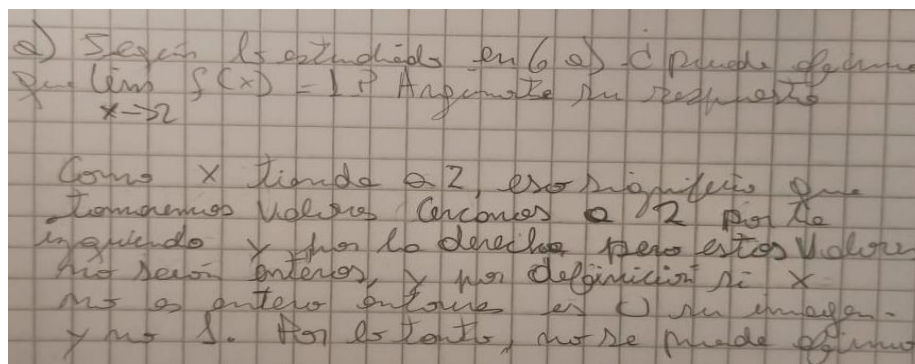 a) Según lo estudiado en 6 a) ¿puede afirmar
que lim f(x) = 1? Argumente su respuesta
x→2
Como x tiende a 2, eso significa que
tomaremos valores cercanos a 2 por la
izquierda y por la derecha pero estos valores
no serán enteros, y por definición si x
no es entero entonces es 0 su imagen
y no 1. Por lo tanto, no se puede afirmar